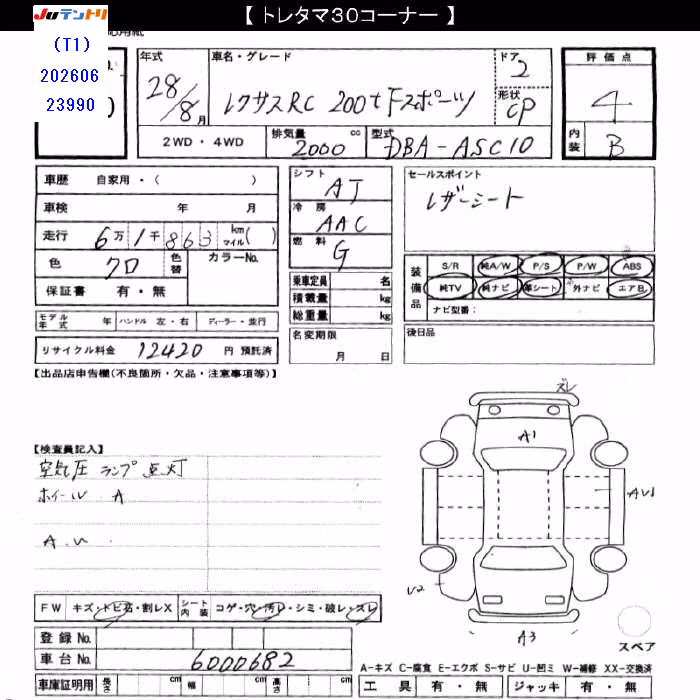 【 トレタマ30コーナー 】
JUテントリ
(T1)
202606
23990
年式
28/8月
車名・グレード
レクサスRC 200t Fスポーツ
ドア
2
形状
CP
評価点
4
内装
B
2WD・4WD
排気量 2000 cc
型式 DBA-ASC10
車歴 自家用・( )
車検 年 月
走行 6万1千863 km マイル( )
色 クロ 色替 カラーNo.
保証書 有・無
モデル年式 年 ハンドル 左・右 ディーラー・並行
リサイクル料金 12420 円 預託済
シフト AT
冷房 AAC
燃料 G
乗車定員 名
積載量 kg
総重量 kg
名変期限
月 日
セールスポイント
レザーシート
装備品
S/R 純A/W P/S P/W ABS
純TV 純ナビ 革シート 外ナビ エアB
ナビ型番：
後日品
【出品店申告欄(不良箇所・欠品・注意事項等)】
【検査員記入】
空気圧 ランプ 点灯
ホイール A
A.U
ズレ
A1
AU1
U2
A3
スペア
FW キズ・トビ石・割レX
シート内装 コゲ・穴・汚レ・シミ・破レ・スレ
登録No.
車台No. 6000682
車庫証明用 長さ cm 幅 cm 高さ cm
A-キズ C-腐食 E-エクボ S-サビ U-凹ミ W-補修 XX-交換済
工具 有・無 ジャッキ 有・無